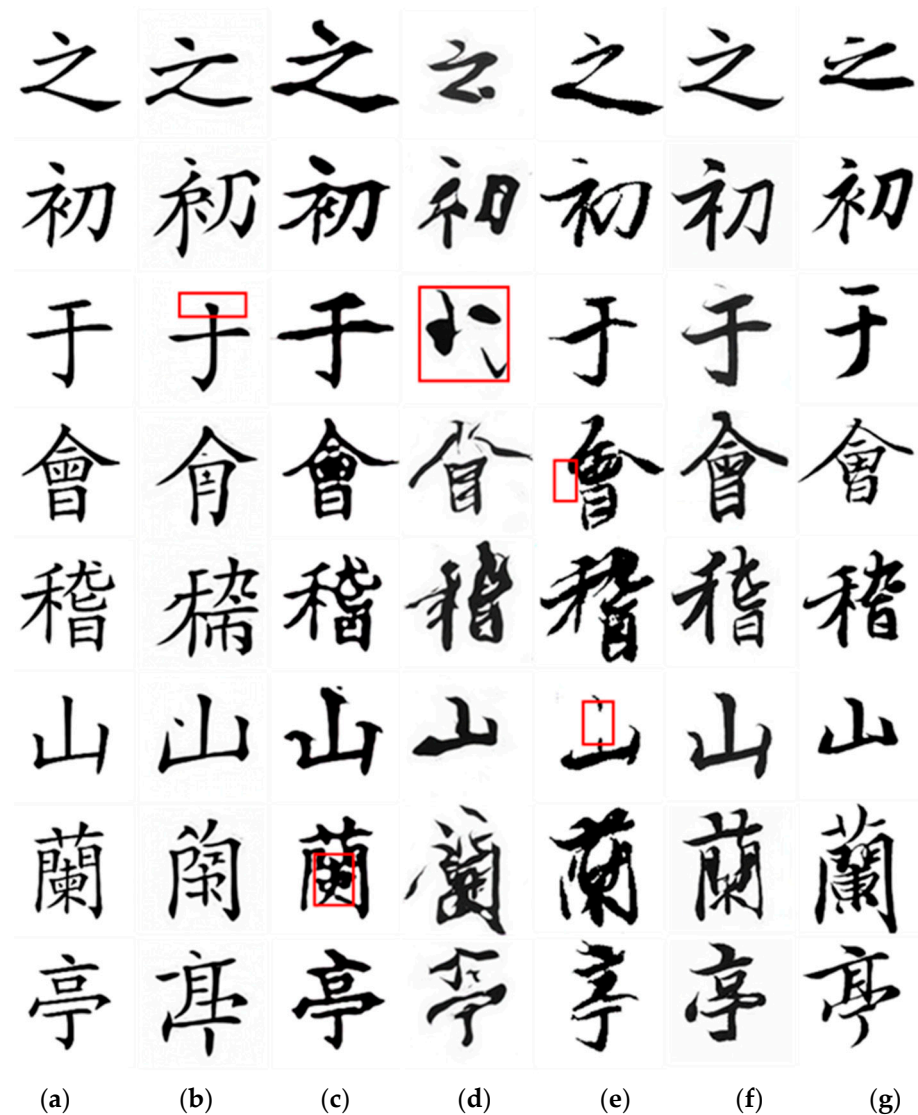 之 之 之 之 之 之 之
初 初 初 初 初 初 初
于 于 于 于 于 于
會 會 會 會 會
稽 稽 稽 稽 稽 稽
山 山 山 山 山 山 山
蘭 蘭 蘭 蘭 蘭
亭 亭 亭 亭 亭
(a) (b) (c) (d) (e) (f) (g)